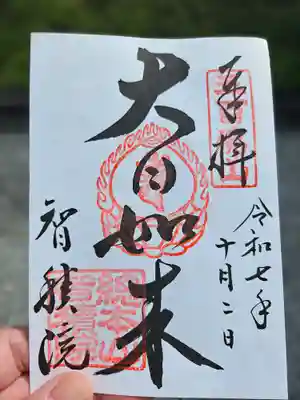 奉拝
令和七年
十月二日
大日如来
智積院
総本山